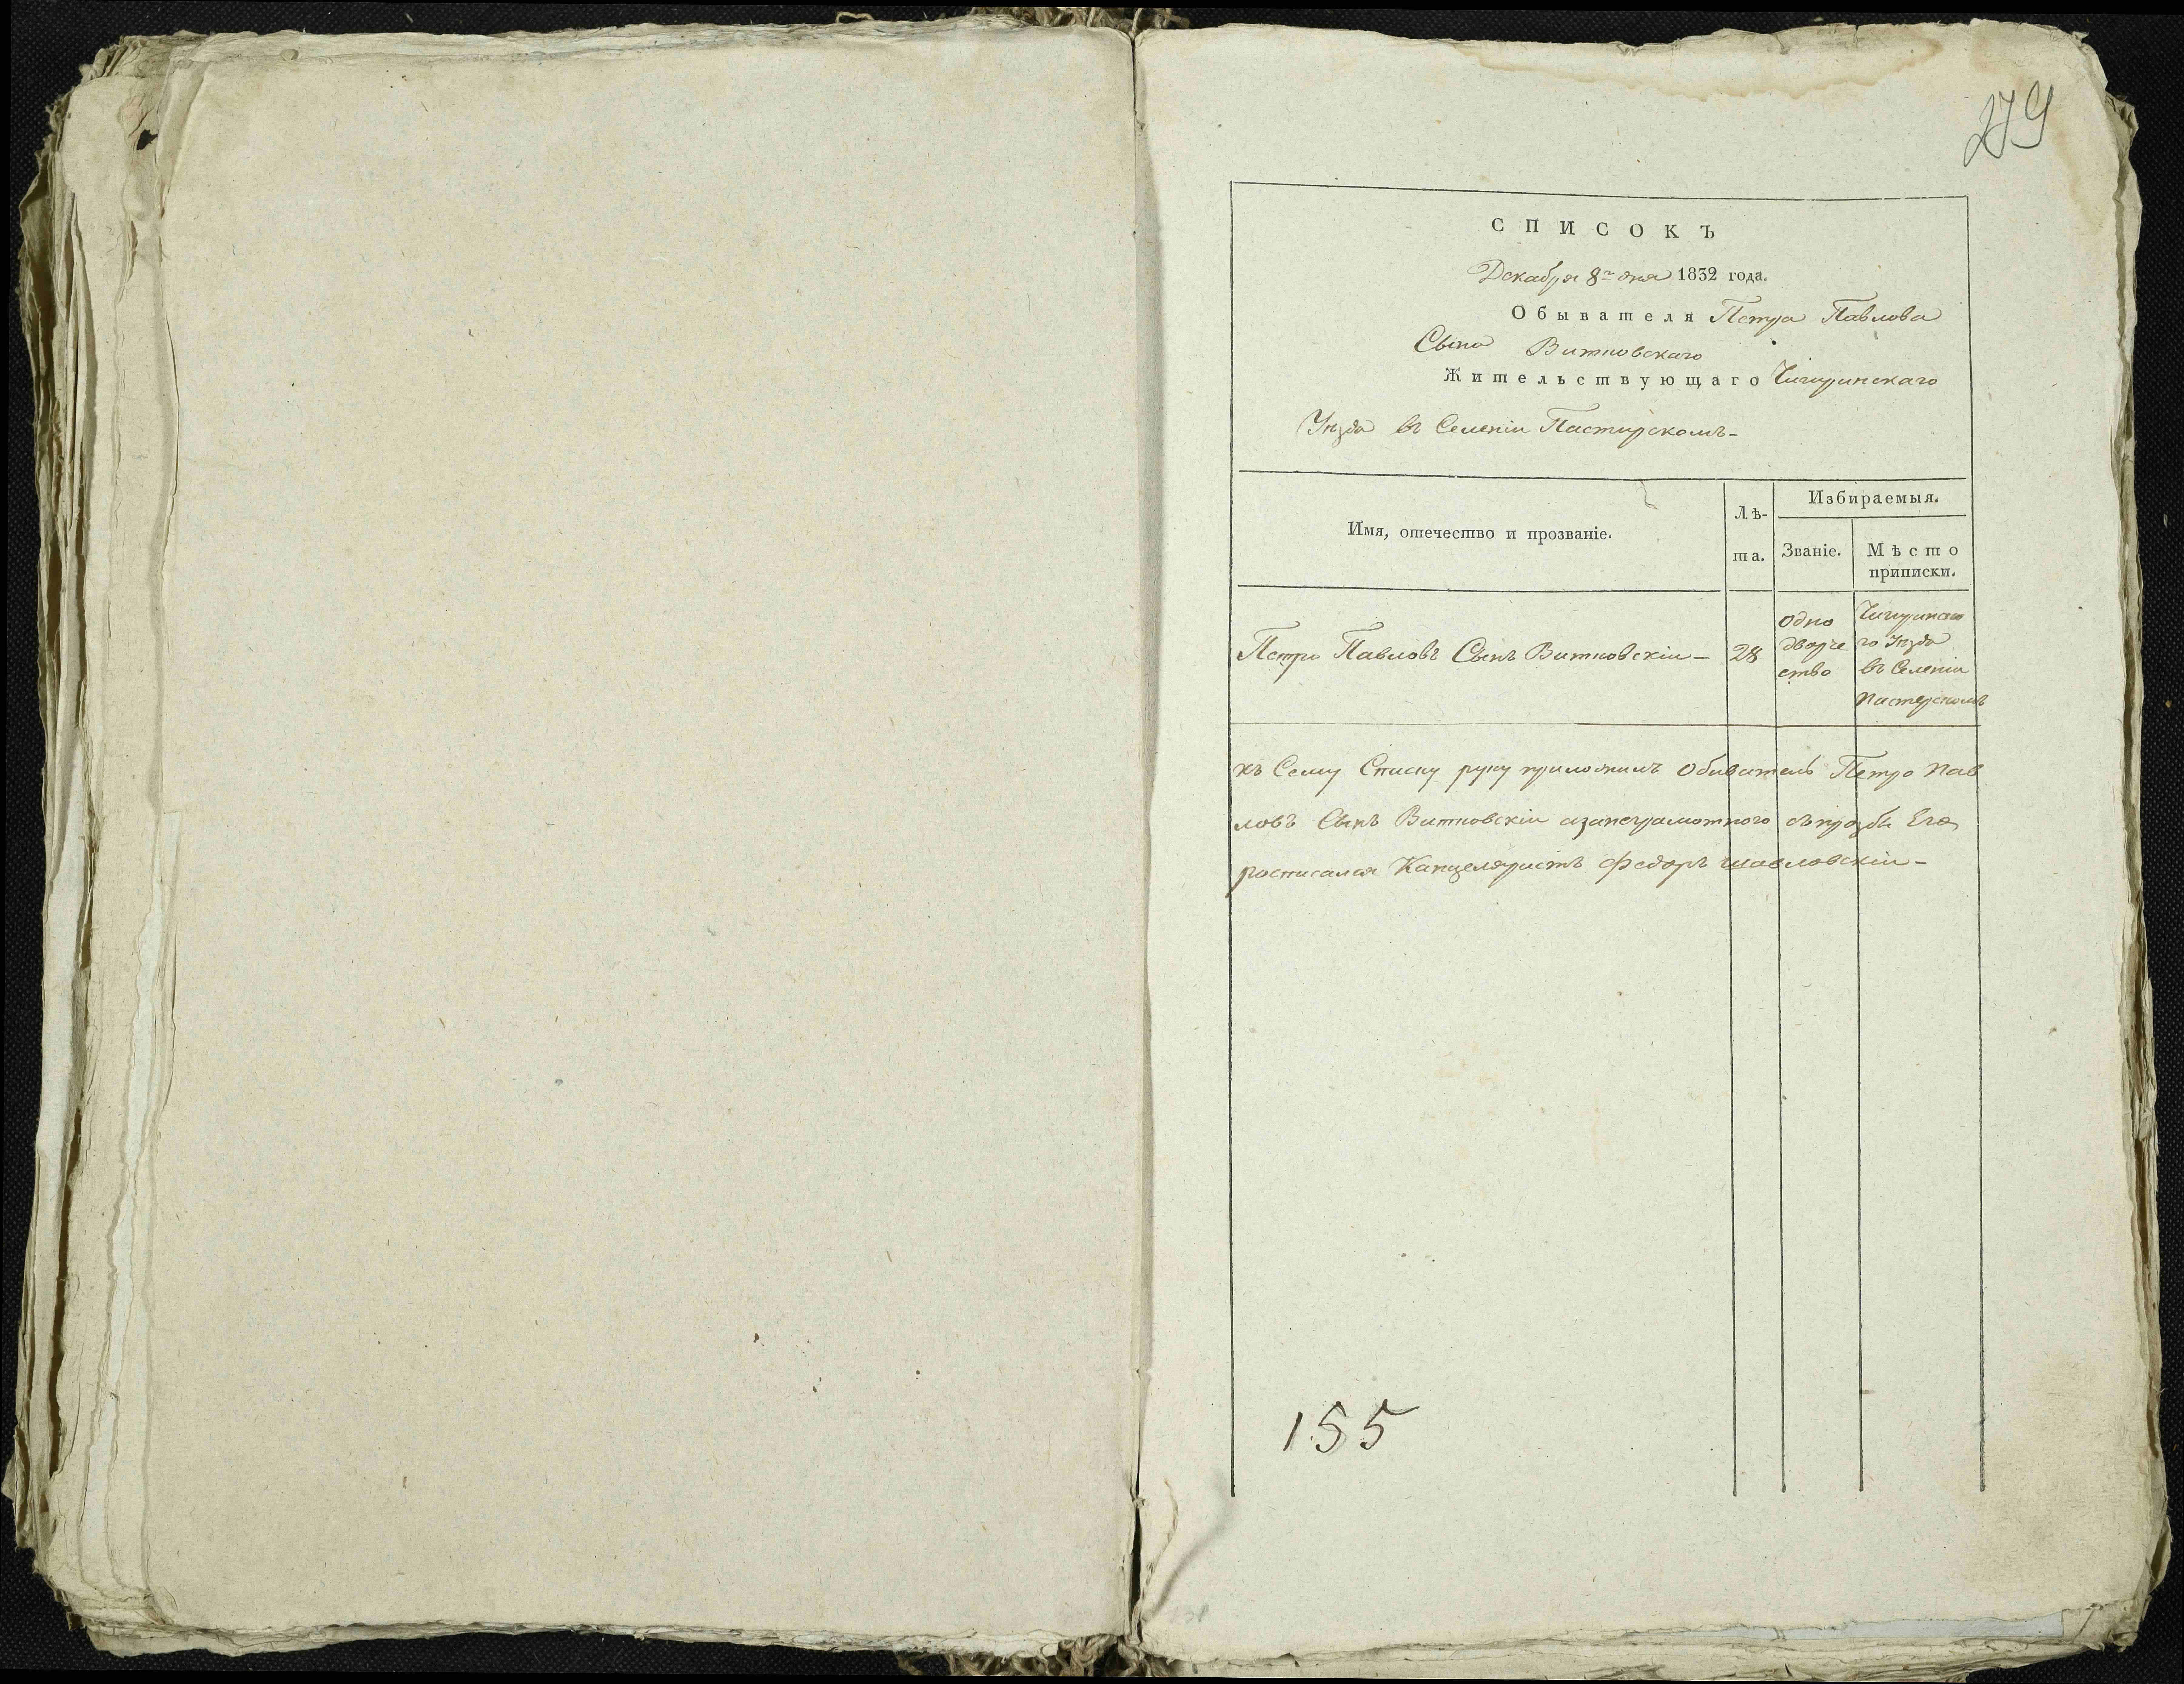 279
СПИСОКЪ
Декабря 8го дня 1832 года.
Обывателя Петра Павлова
Сына Витковскаго
Жительствующаго Чигиринскаго
Уѣзда въ Селеніи Пастирскомъ-
Имя, отечество и прозваніе.
Лѣ-
та.
Избираемыя.
Званіе.
Мѣсто
приписки.
Петро Павловъ Сынъ Витковскіи-
28
одно
дворче
ство
Чигиринска
го Уѣзда
въ Селеніи
Пастерскомъ
къ Сему Списку руку приложилъ обиватель Петро Пав
ловъ Сынъ Витковскіи азанеграмотного спрозби Его
росписался Канцеляристъ Федоръ
155